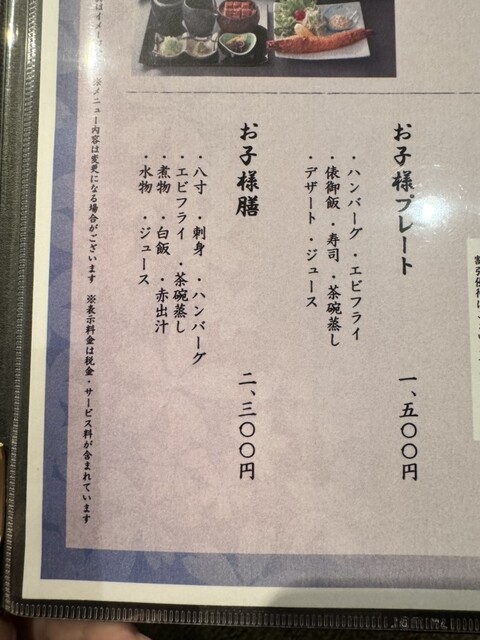 お子様プレート 一、五〇〇円
・ハンバーグ・エビフライ
・俵御飯・寿司・茶碗蒸し
・デザート・ジュース
お子様膳 二、三〇〇円
・八寸・刺身・ハンバーグ
・エビフライ・茶碗蒸し
・煮物・白飯・赤出汁
・水物・ジュース
メニュー内容は変更になる場合がございます ※表示料金は税金・サービス料が含まれています